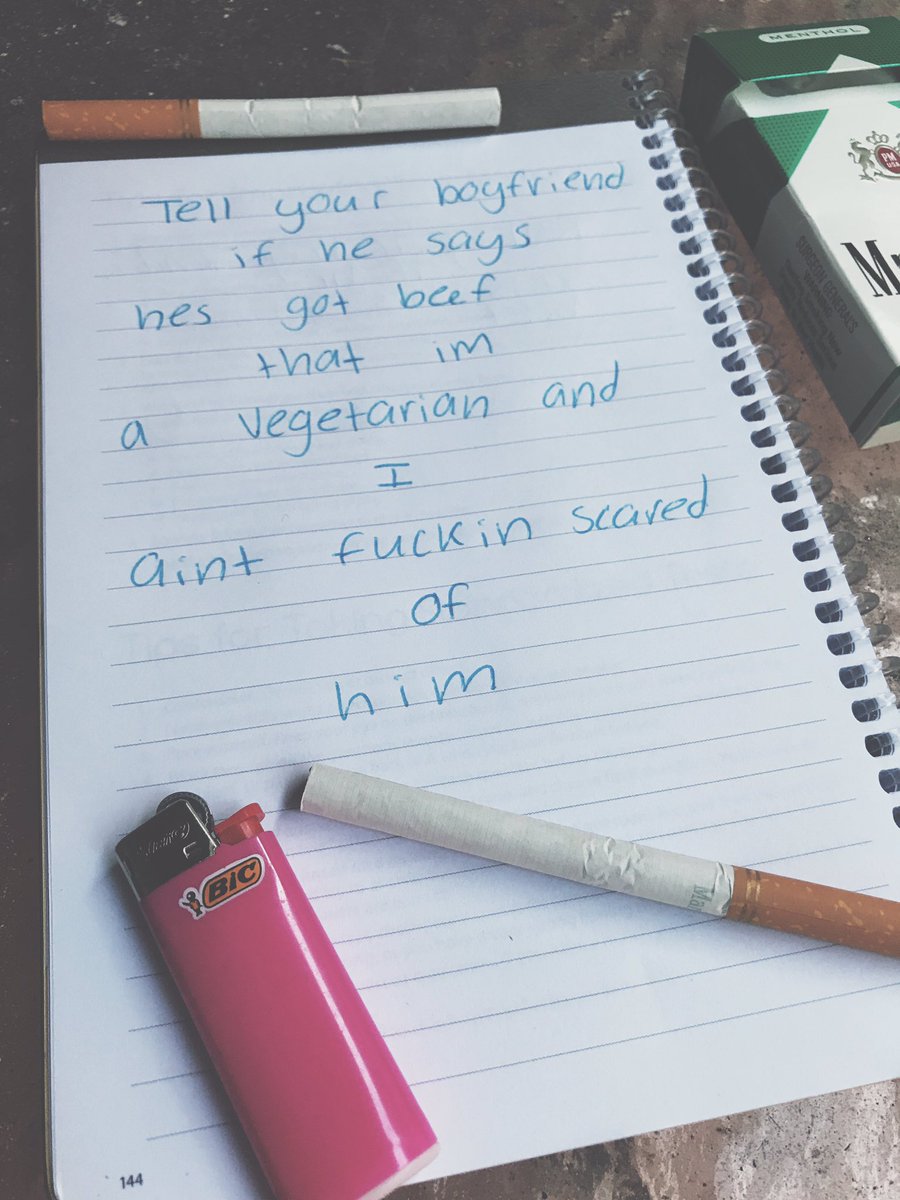 MENTHOL
PM
USA
SURGEON GENERAL'S
Tell your boyfriend
if he says
hes got beef
that im
a vegetarian and
I
aint fuckin scared
of
him
BIC
144